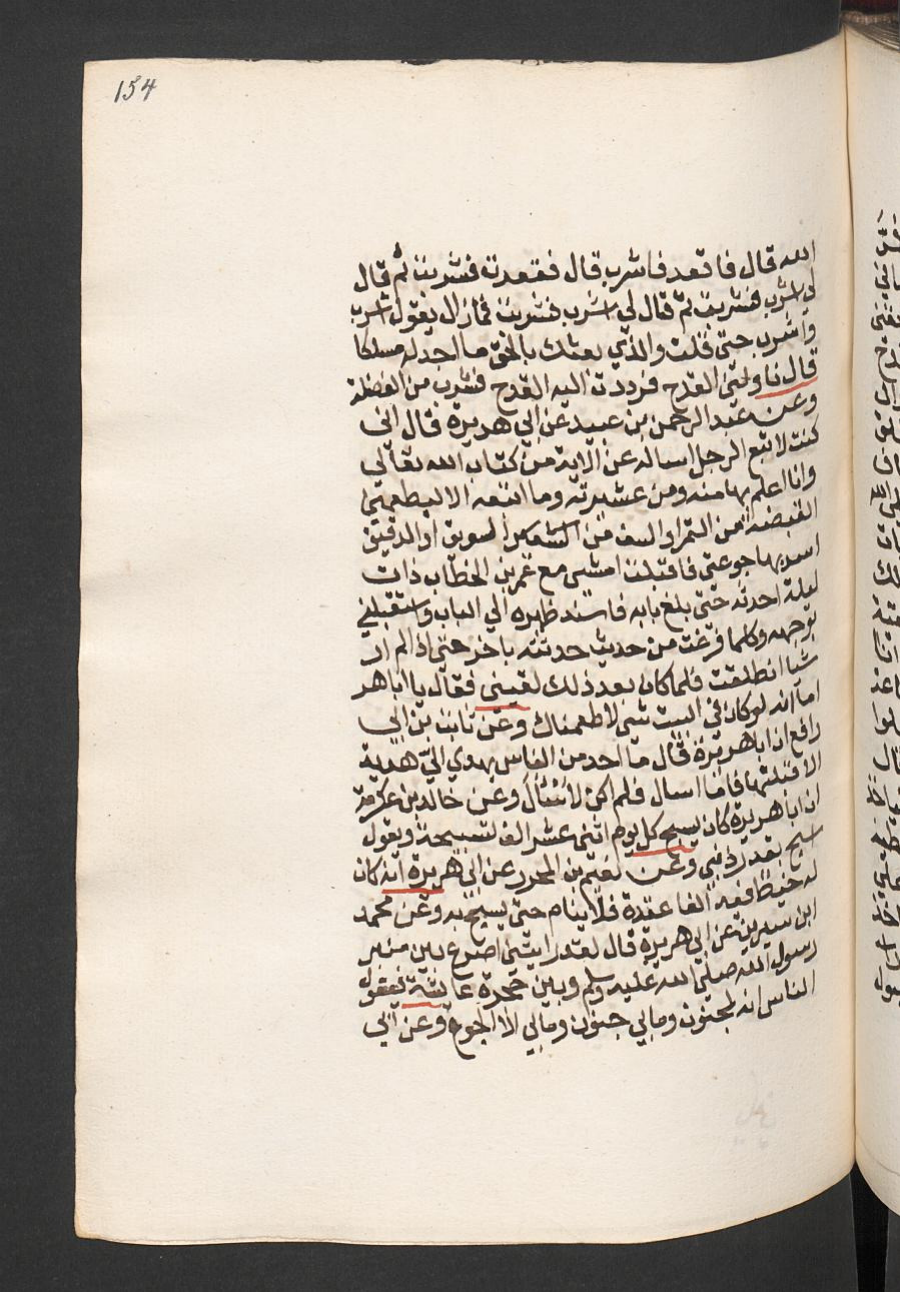 154
الله قال فاقعد فاشرب قال فقعدت فشربت ثم قال
لي اشرب فشربت ثم قال لي اشرب فشربت فمازال يقول اشرب
واشرب حتى قلت والذي بعثك بالحق ما اجد له مسلكا
قال ناولني القدح فرددت اليه القدح فشرب من الفضلة
وعن عبد الرحمن بن عبيد عن ابي هريرة قال اني
كنت لاتبع الرجل اساله عن الاية من كتاب الله تعالي
وانا اعلم بها منه ومن عشيرته وما اتبعه الا ليطعمني
القبضة من التمر او السف من السويق او الدقيق
اسد بها جوعتي فاقبلت امشي مع عمر بن الخطاب ذات
ليلة احدثه حتى بلغ بابه فاسند ظهره الي الباب واستقبلني
بوجهه وكلما فرغت من حديث حدثته باخر حتى اذا لم ار
شيا انطلقت فلما كان بعد ذلك لقيني فقال يا ابا هر
اما انه لو كان في البيت شي لاطعمناك وعن ثابت بن ابي
رافع ان ابا هريرة قال ما احد من الناس يهدي الي هدية
الا قبلتها فاما اسال فلم اكن لاسال وعن خالد بن عكرمة
ان ابا هريرة كان يسبح كل يوم اثني عشر الف تسبيحة ويقول
اسبح بقدر ذنبي وعن نعيم بن المحرر عن ابي هريرة انه كان
له خيط فيه الفا عقدة فلا ينام حتى يسبح به وعن محمد
ابن سيرين عن ابي هريرة قال لقد رايتني اصرع بين منبر
رسول الله صلى الله عليه وسلم وبين حجرة عائشة فيقول
الناس انه لمجنون ومابي جنون ومابي الا الجوع وعن ابي